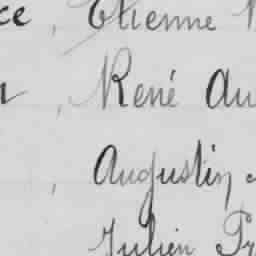 ce, Etienne
, René Au
, Augustin
Julien